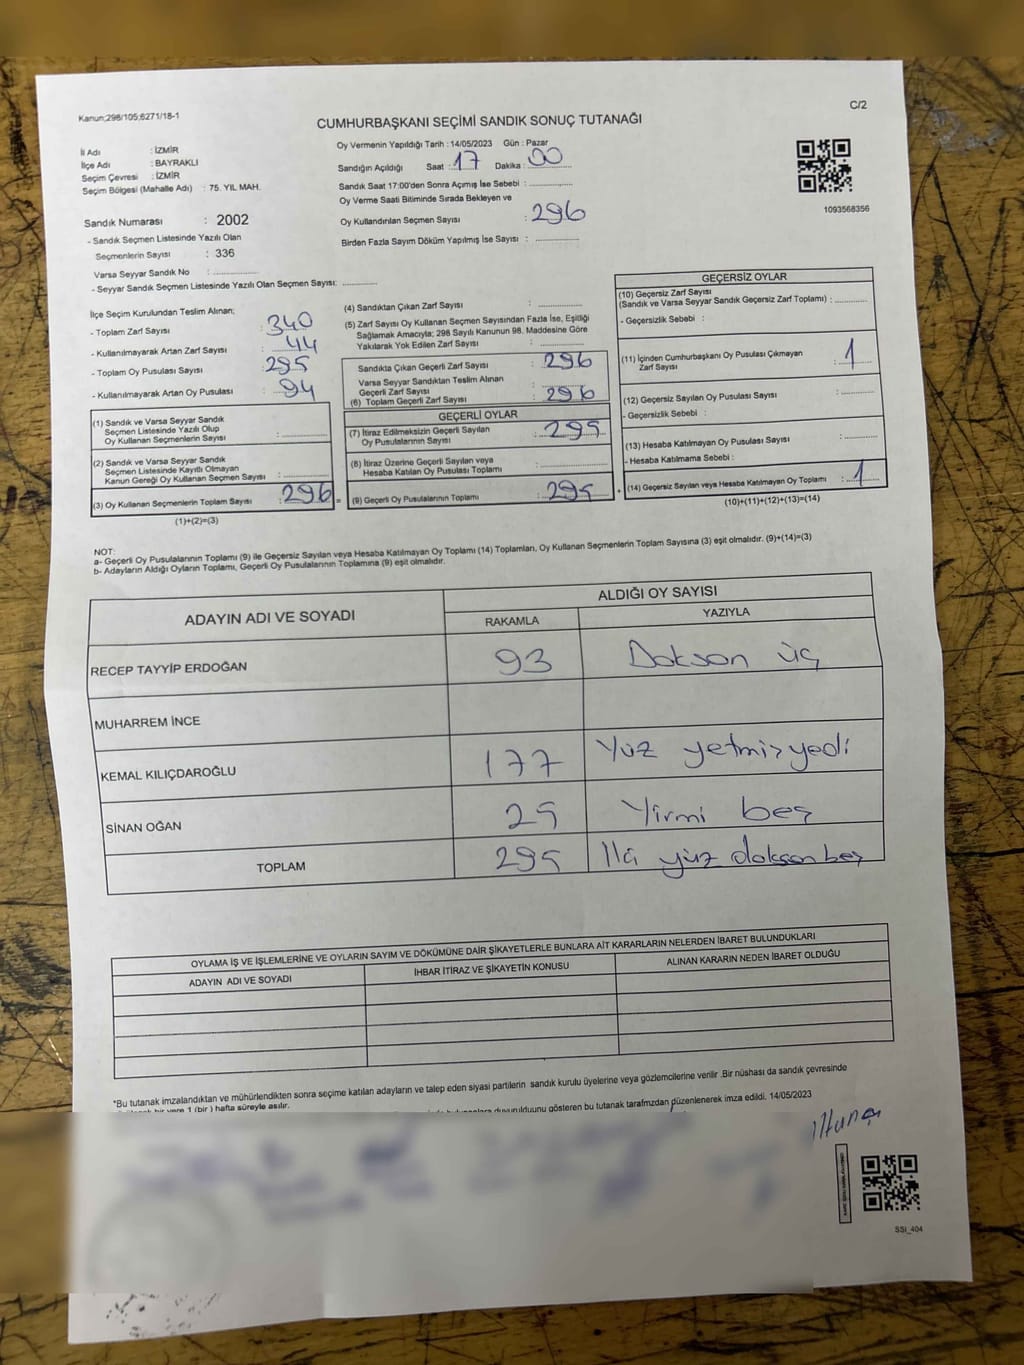 Kanun;298/105;6271/18-1
C/2
CUMHURBAŞKANI SEÇİMİ SANDIK SONUÇ TUTANAĞI
İl Adı : İZMİR
İlçe Adı : BAYRAKLI
Seçim Çevresi : İZMİR
Seçim Bölgesi (Mahalle Adı) : 75. YIL MAH.
Sandık Numarası : 2002
- Sandık Seçmen Listesinde Yazılı Olan
Seçmenlerin Sayısı : 336
Varsa Seyyar Sandık No : ..............
- Seyyar Sandık Seçmen Listesinde Yazılı Olan Seçmen Sayısı: ............
Oy Vermenin Yapıldığı Tarih : 14/05/2023 Gün : Pazar
Sandığın Açıldığı Saat : 17 Dakika : 00
Sandık Saat 17:00'den Sonra Açımış İse Sebebi : ..............
Oy Verme Saati Bitiminde Sırada Bekleyen ve
Oy Kullandırılan Seçmen Sayısı : 296
Birden Fazla Sayım Döküm Yapılmış İse Sayısı : ..............
1093568356
İlçe Seçim Kurulundan Teslim Alınan;
- Toplam Zarf Sayısı : 340
- Kullanılmayarak Artan Zarf Sayısı : 44
- Toplam Oy Pusulası Sayısı : 295
- Kullanılmayarak Artan Oy Pusulası : 94
(1) Sandık ve Varsa Seyyar Sandık
Seçmen Listesinde Yazılı Olup
Oy Kullanan Seçmenlerin Sayısı : ..............
(2) Sandık ve Varsa Seyyar Sandık
Seçmen Listesinde Kayıtlı Olmayan
Kanun Gereği Oy Kullanan Seçmen Sayısı : ..............
(3) Oy Kullanan Seçmenlerin Toplam Sayısı : 296 =
(1)+(2)=(3)
(4) Sandıktan Çıkan Zarf Sayısı : ..............
(5) Zarf Sayısı Oy Kullanan Seçmen Sayısından Fazla İse, Eşitliği
Sağlamak Amacıyla; 298 Sayılı Kanunun 98. Maddesine Göre
Yakılarak Yok Edilen Zarf Sayısı : ..............
Sandıkta Çıkan Geçerli Zarf Sayısı : 296
Varsa Seyyar Sandıktan Teslim Alınan
Geçerli Zarf Sayısı
(6) Toplam Geçerli Zarf Sayısı : 296
GEÇERLİ OYLAR
(7) İtiraz Edilmeksizin Geçerli Sayılan
Oy Pusulalarının Sayısı : 295
(8) İtiraz Üzerine Geçerli Sayılan veya
Hesaba Katılan Oy Pusulası Toplamı : ..............
(9) Geçerli Oy Pusulalarının Toplamı : 295 +
GEÇERSİZ OYLAR
(10) Geçersiz Zarf Sayısı
(Sandık ve Varsa Seyyar Sandık Geçersiz Zarf Toplamı) : ............
- Geçersizlik Sebebi :
(11) İçinden Cumhurbaşkanı Oy Pusulası Çıkmayan
Zarf Sayısı : 1
(12) Geçersiz Sayılan Oy Pusulası Sayısı : ............
- Geçersizlik Sebebi :
(13) Hesaba Katılmayan Oy Pusulası Sayısı : ............
- Hesaba Katılmama Sebebi :
(14) Geçersiz Sayılan veya Hesaba Katılmayan Oy Toplamı : 1
(10)+(11)+(12)+(13)=(14)
NOT:
a- Geçerli Oy Pusulalarının Toplamı (9) ile Geçersiz Sayılan veya Hesaba Katılmayan Oy Toplamı (14) Toplamları, Oy Kullanan Seçmenlerin Toplam Sayısına (3) eşit olmalıdır. (9)+(14)=(3)
b- Adayların Aldığı Oyların Toplamı, Geçerli Oy Pusulalarının Toplamına (9) eşit olmalıdır.
ADAYIN ADI VE SOYADI
ALDIĞI OY SAYISI
RAKAMLA YAZIYLA
RECEP TAYYİP ERDOĞAN 93 Doksan üç
MUHARREM İNCE
KEMAL KILIÇDAROĞLU 177 Yüz yetmiş yedi
SİNAN OĞAN 25 Yirmi beş
TOPLAM 295 İki yüz doksan beş
OYLAMA İŞ VE İŞLEMLERİNE VE OYLARIN SAYIM VE DÖKÜMÜNE DAİR ŞİKAYETLERLE BUNLARA AİT KARARLARIN NELERDEN İBARET BULUNDUKLARI
ADAYIN ADI VE SOYADI İHBAR İTİRAZ VE ŞİKAYETİN KONUSU ALINAN KARARIN NEDEN İBARET OLDUĞU
*Bu tutanak imzalandıktan ve mühürlendikten sonra seçime katılan adayların ve talep eden siyasi partilerin sandık kurulu üyelerine veya gözlemcilerine verilir .Bir nüshası da sandık çevresinde
bir yere 1 (bir ) hafta süreyle asılır.
duyurulduunu gösteren bu tutanak tarafmzdan düzenlenerek imza edildi. 14/05/2023
SSİ_404